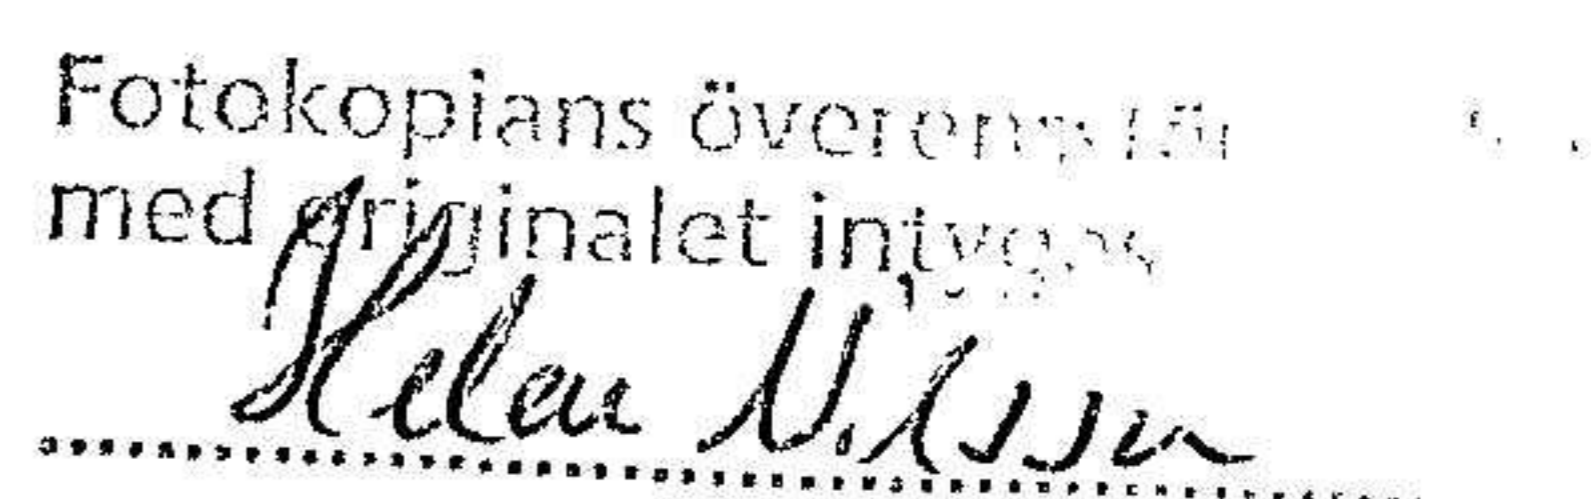 Fotokopians överens
med originalet intygas
Helen Nilsson